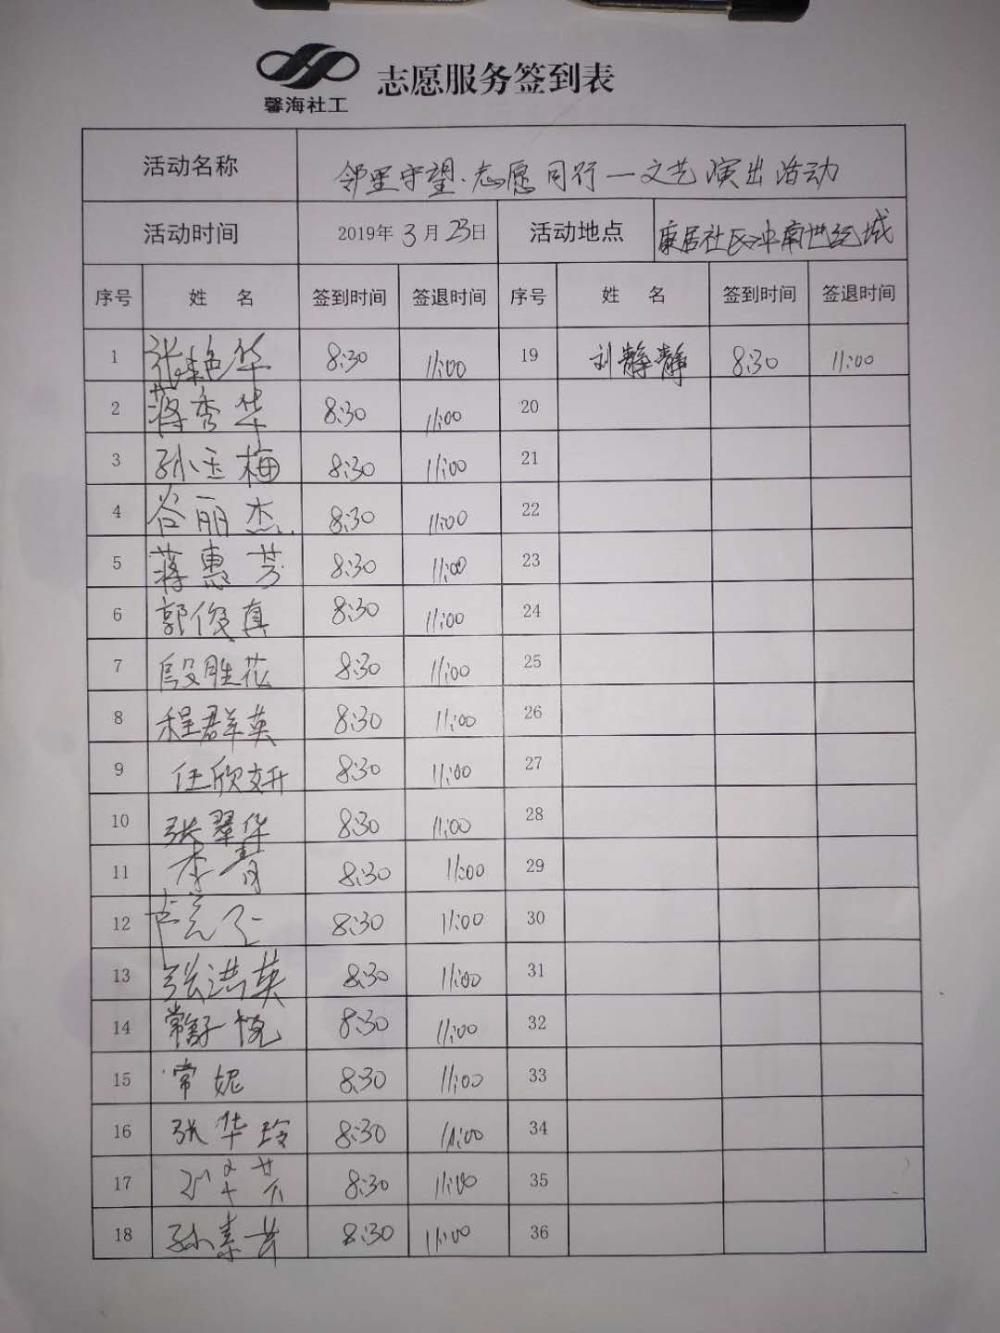 馨海社工
志愿服务签到表
活动名称 邻里守望·志愿同行—文艺演出活动
活动时间 2019年3月23日 活动地点 康居社区冲南世纪城
序号 姓 名 签到时间 签退时间 序号 姓 名 签到时间 签退时间
1 张艳华 8:30 11:00 19 刘静静 8:30 11:00
2 蒋秀华 8:30 11:00 20
3 孙玉梅 8:30 11:00 21
4 谷丽杰 8:30 11:00 22
5 蒋惠芳 8:30 11:00 23
6 郭俊真 8:30 11:00 24
7 段胜花 8:30 11:00 25
8 程群英 8:30 11:00 26
9 任欣妍 8:30 11:00 27
10 张翠华 8:30 11:00 28
11 李青 8:30 11:00 29
12 8:30 11:00 30
13 张洪英 8:30 11:00 31
14 常舒悦 8:30 11:00 32
15 常妮 8:30 11:00 33
16 张华玲 8:30 11:00 34
17 8:30 11:00 35
18 孙素芳 8:30 11:00 36